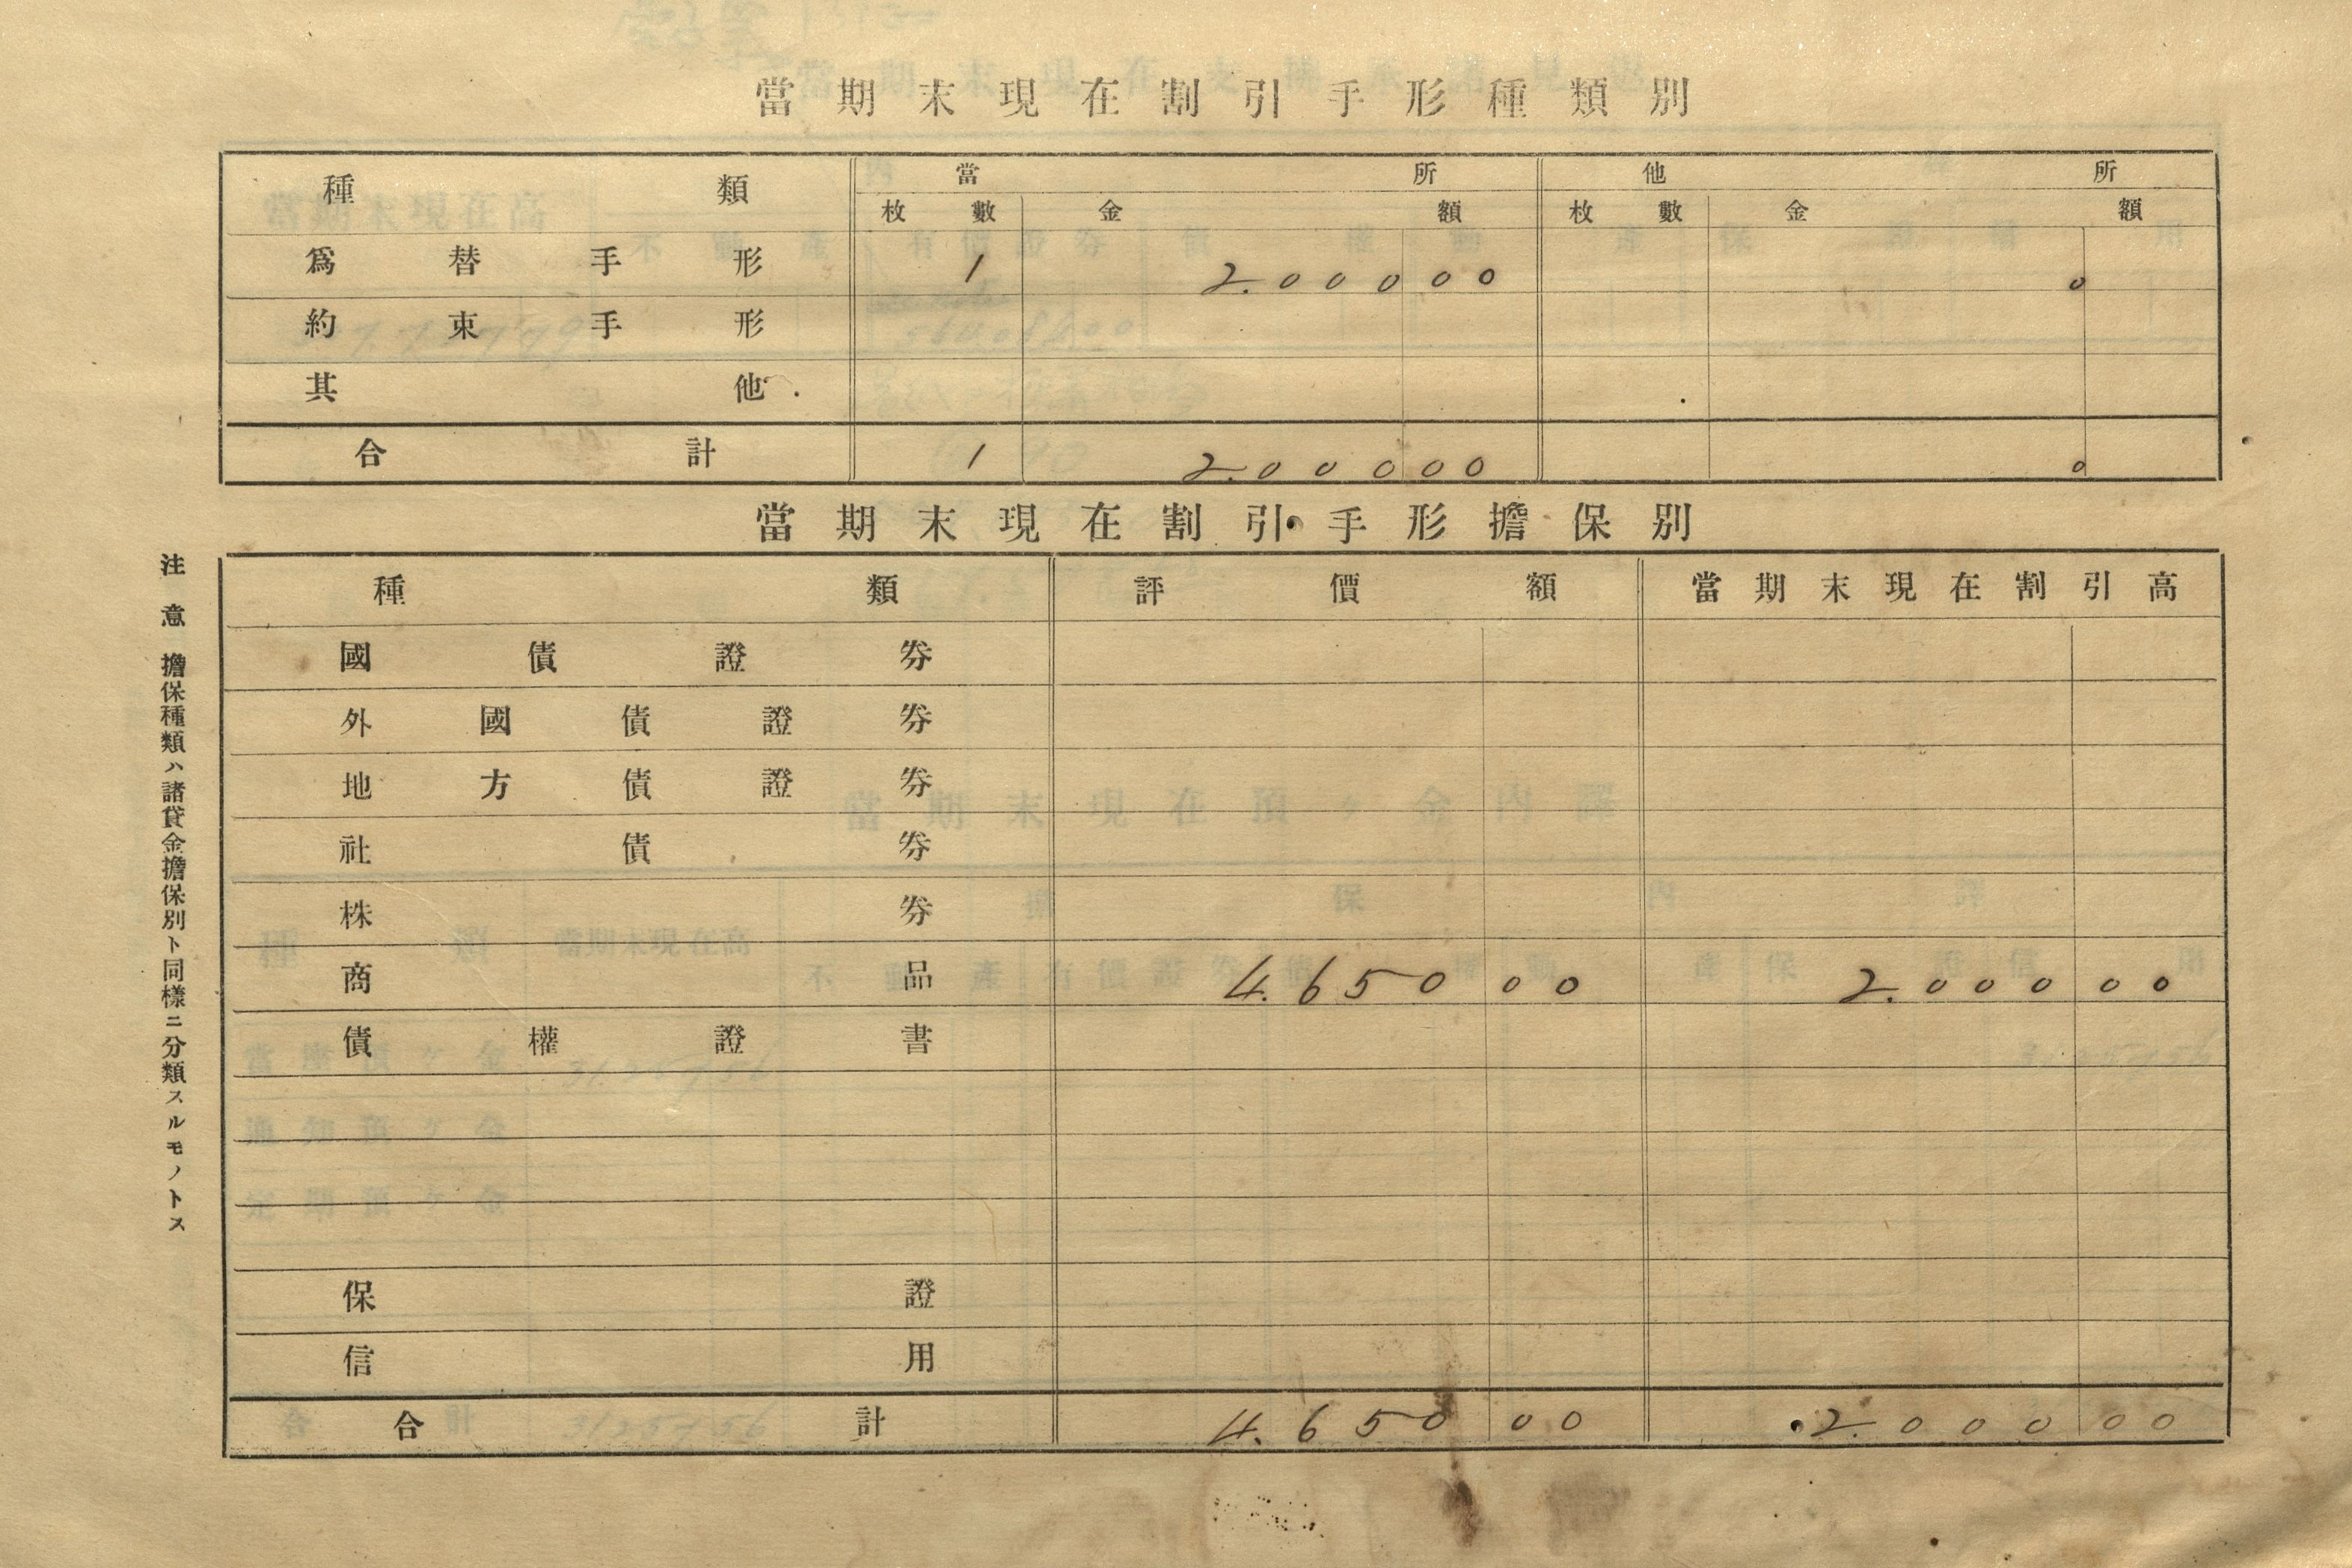 當期末現在割引手形種類別
種類 當所 他所
枚數 金額 枚數 金額
爲替手形 1 2.000 00 0
約束手形
其他
合計 1 2.000 00 0
當期末現在割引手形擔保別
種類 評價額 當期末現在割引高
國債證券
外國債證券
地方債證券
社債券
株券
商品 4.650 00 2.000 00
債權證書
保證
信用
合計 4.650 00 2.000 00
注意 擔保種類ハ諸貸金擔保別ト同樣ニ分類スルモノトス